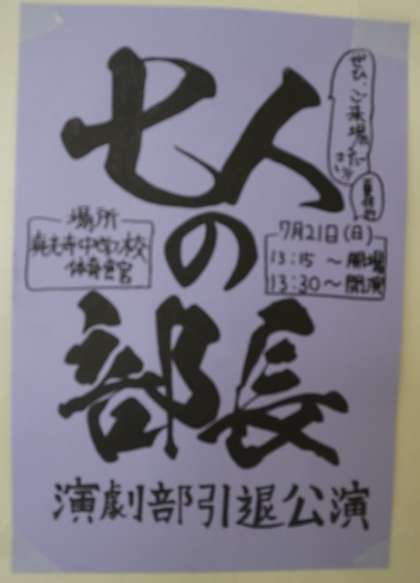 七人
の
部長
ぜひ、ご来場
ください
場所
体育館
7月21日(日)
13:15 ~ 開場
13:30 ~ 開演
演劇部引退公演